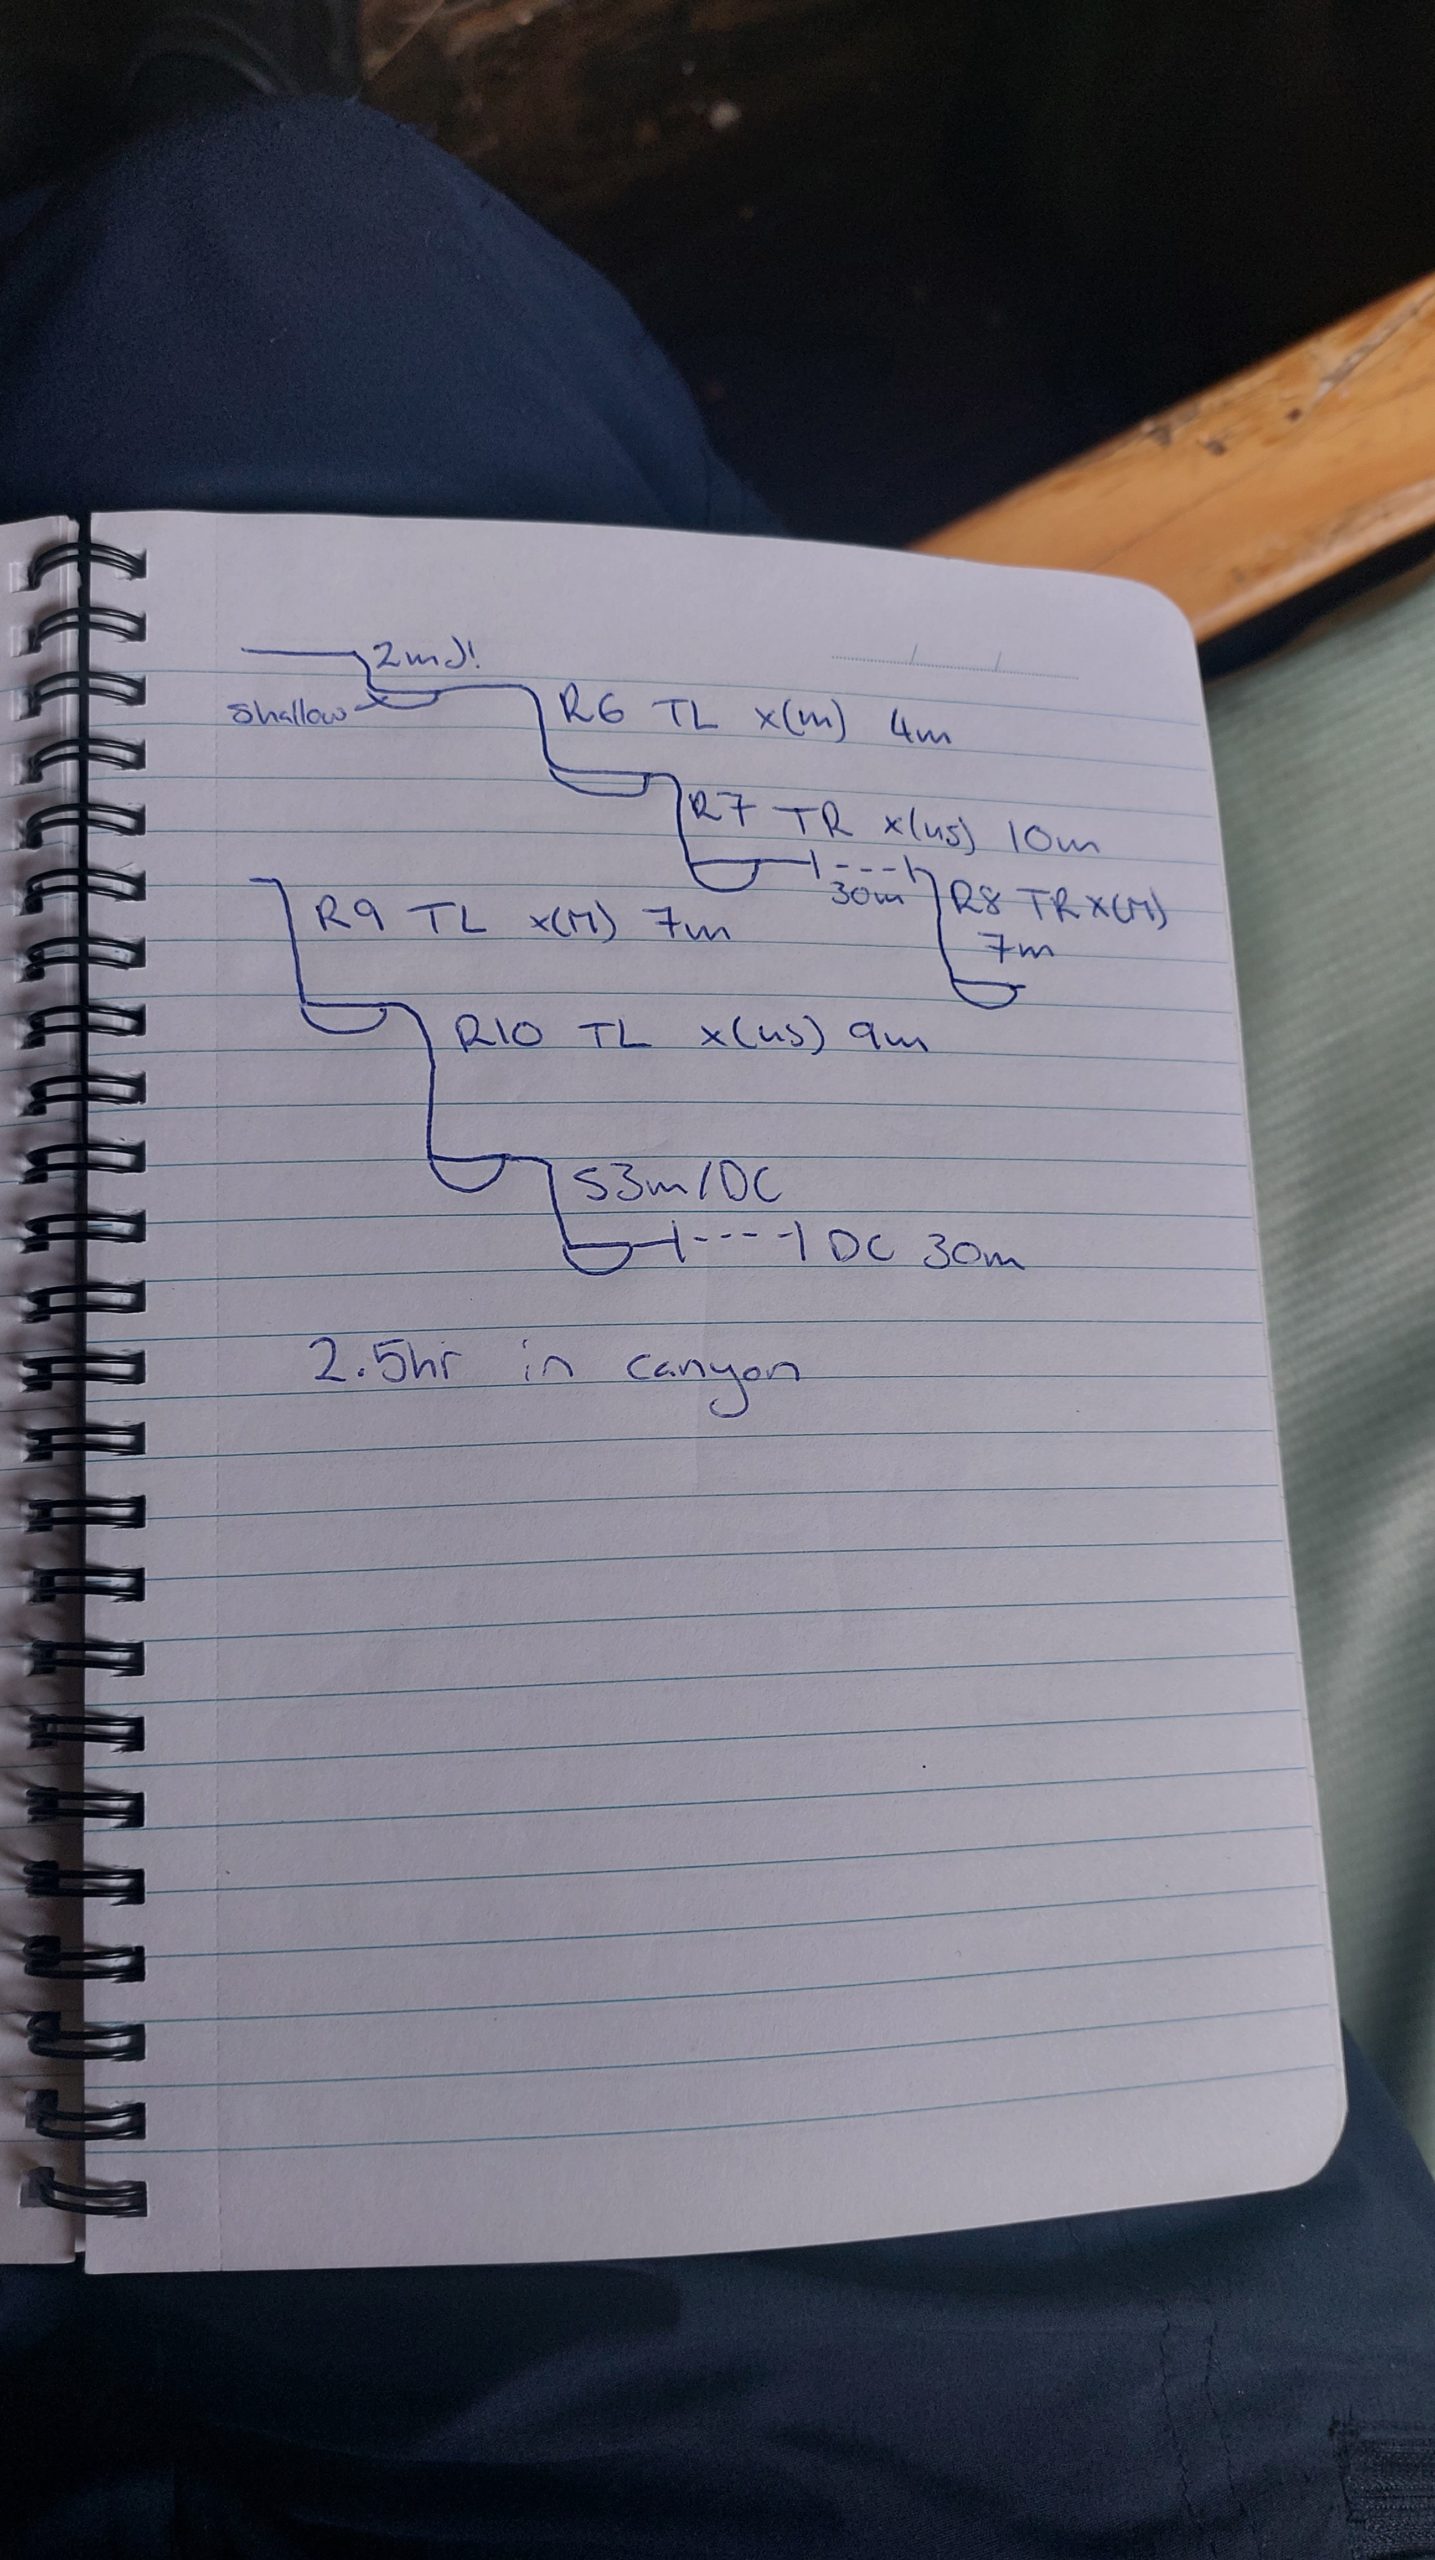 2mJ!
shallow
R6 TL x(m) 4m
R7 TR x(us) 10m
30m
R8 TR x(M)
7m
R9 TL x(M) 7m
R10 TL x(us) 9m
S3m/DC
DC 30m
2.5hr in canyon